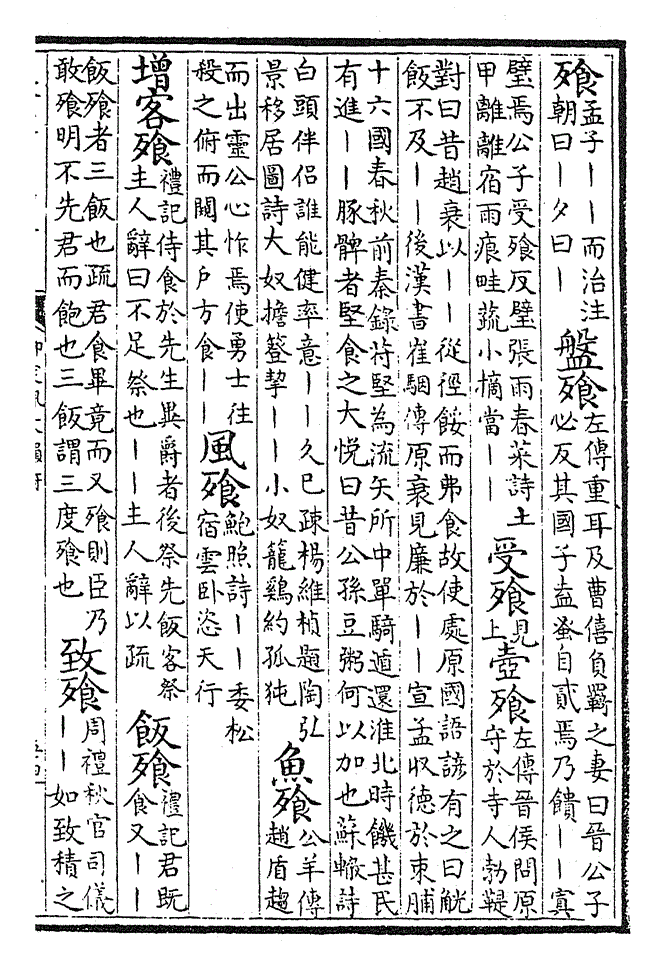 飱
孟子——而治注
朝曰—夕曰—
盤飱
左傳重耳及曹僖負羈之妻曰晉公子
必反其國子盍蚤自貳焉乃饋——寘
璧焉公子受飱反璧張雨春菜詩土
甲離離宿雨痕畦蔬小摘當——
受飱
見
上
壺飱
左傳晉侯問原
守於寺人勃鞮
對曰昔趙衰以——從徑餒而弗食故使處原國語諺有之曰觥
飯不及——後漢書崔駰傳原衰見廉於——宣孟收德於束脯
十六國春秋前秦錄苻堅為流矢所中單騎遁還淮北時饑甚民
有進——豚髀者堅食之大悅曰昔公孫豆粥何以加也蘇轍詩
白頭伴侶誰能健率意——久已疎楊維楨題陶弘
景移居圖詩大奴擔簦挈——小奴籠鷄約孤㹠
魚飱
公羊傳
趙盾趨
而出靈公心怍焉使勇士往
殺之俯而闚其戶方食——
風飱
鮑照詩——委松
宿雲卧恣天行
增客飱
禮記侍食於先生異爵者後祭先飯客祭
主人辭曰不足祭也——主人辭以疏
飯飱
禮記君既
食又——
飯飱者三飯也疏君食畢竟而又飱則臣乃
敢飱明不先君而飽也三飯謂三度飱也
致飱
周禮秋官司儀
——如致積之